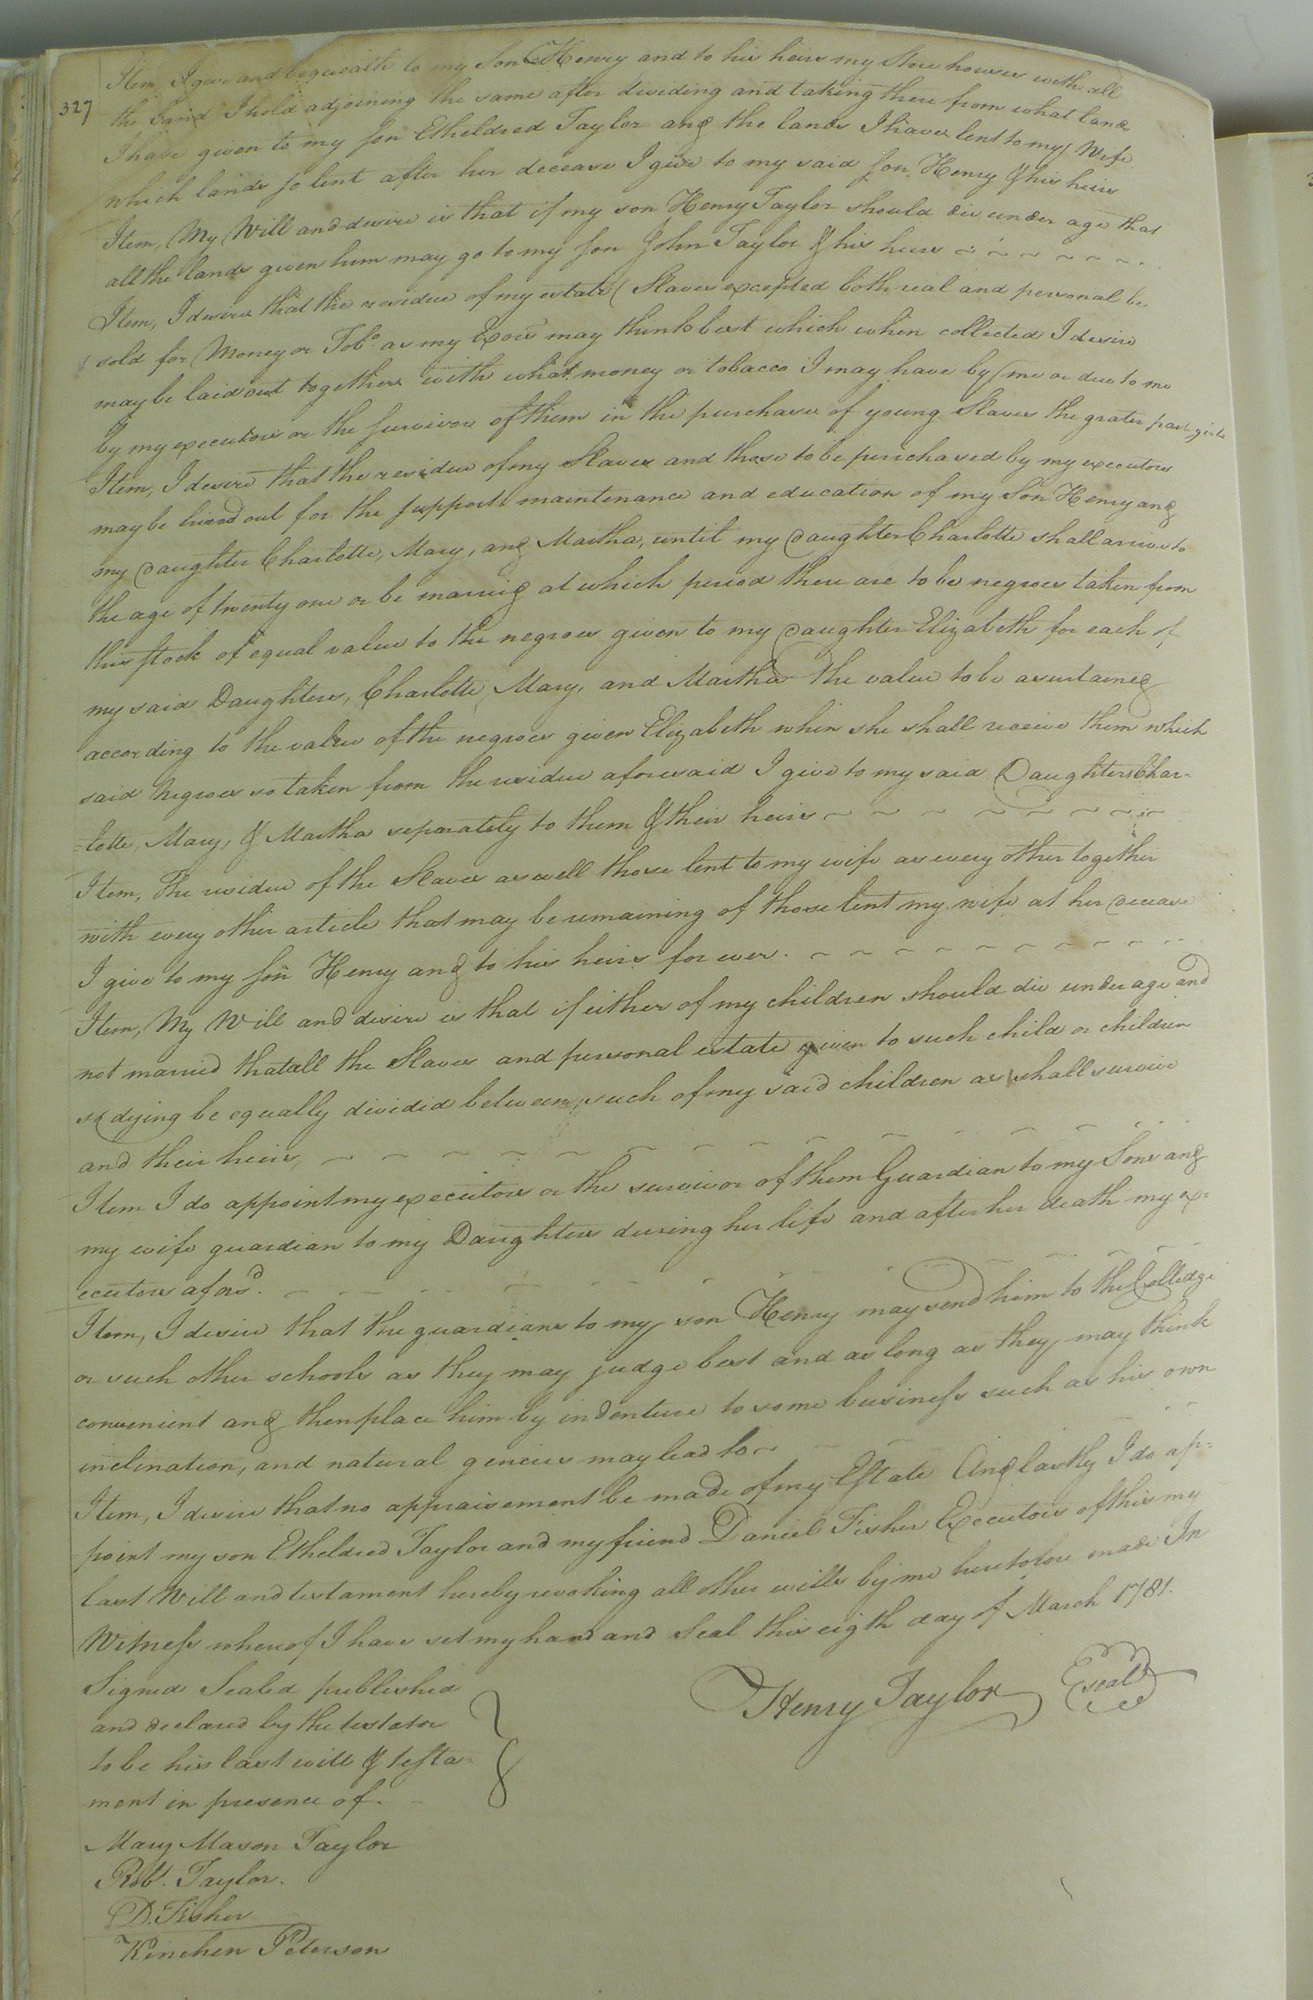 327
Item I give and bequeath to my Son Henry and to his heirs my Store houses with all
the Land I hold adjoining the same after dividing and taking there from what lands
I have given to my son Etheldred Taylor and the lands I have lent to my Wife
which lands so lent after her decease I give to my said son Henry & his heirs
Item, My Will and desire is that if my son Henry Taylor should die under age that
all the lands given him may go to my son John Taylor & his heirs
Item, I desire that the residue of my estate (Slaves excepted both real and personal be
sold for Money or Tobo. as my Exors may think best which when collected I desire
may be laid out together with what money or tobacco I may have by me or due to me
by my executors or the survivor of them in the purchase of young Slaves the grater part girls
Item, I desire that the residue of my Slaves and those to be purchased by my executors
may be hired out for the support maintenance and education of my Son Henry and
my daughter Charlotte, Mary, and Martha, until my daughter Charlotte shall arrive to
the age of twenty one or be married at which period there are to be negroes taken from
this stock of equal value to the negroes given to my daughter Elizabeth for each of
my said Daughters, Charlotte, Mary, and Martha the value to be asertained
according to the value of the negroes given Elizabeth when she shall receive them which
said Negroes so taken from the residue aforesaid I give to my said Daughters Char-
=lotte, Mary, & Martha seperately to them & their heirs
Item, The residue of the Slaves as well those lent to my wife as every other together
with every other article that may be remaining of those lent my wife at her decease
I give to my son Henry and to his heirs for ever.
Item, My Will and desire is that if either of my children should die under age and
not married that all the Slaves and personal estate given to such child or children
so dying be equally divided between such of my said children as shall survive
and their heirs,
Item I do appoint my executors or the survivor of them Guardian to my Sons and
my wife guardian to my Daughters during her life and after her death my ex-
ecutors aforsd.
Item, I desire that the guardians to my son Henry may send him to the Colledge
or such other schools as they may judge best and as long as they may think
convenient and then place him by indenture to some business such as his own
inclination, and natural genius may lead to
Item, I desire that no appraisement be made of my Estate And lastly I do ap=
point my son Etheldred Taylor and my friend Daniel Fisher Executors of this my
last Will and testament hereby revoking all other wills by me heretofore made In
Witness whereof I have set my hand and Seal this eigth day of March 1781.
Signed Sealed published
and declared by the testator
to be his last will & testa-
ment in presence of.
Henry Taylor (seal)
Mary Mason Taylor
Robt. Taylor.
D. Fisher
Kinchen Peterson